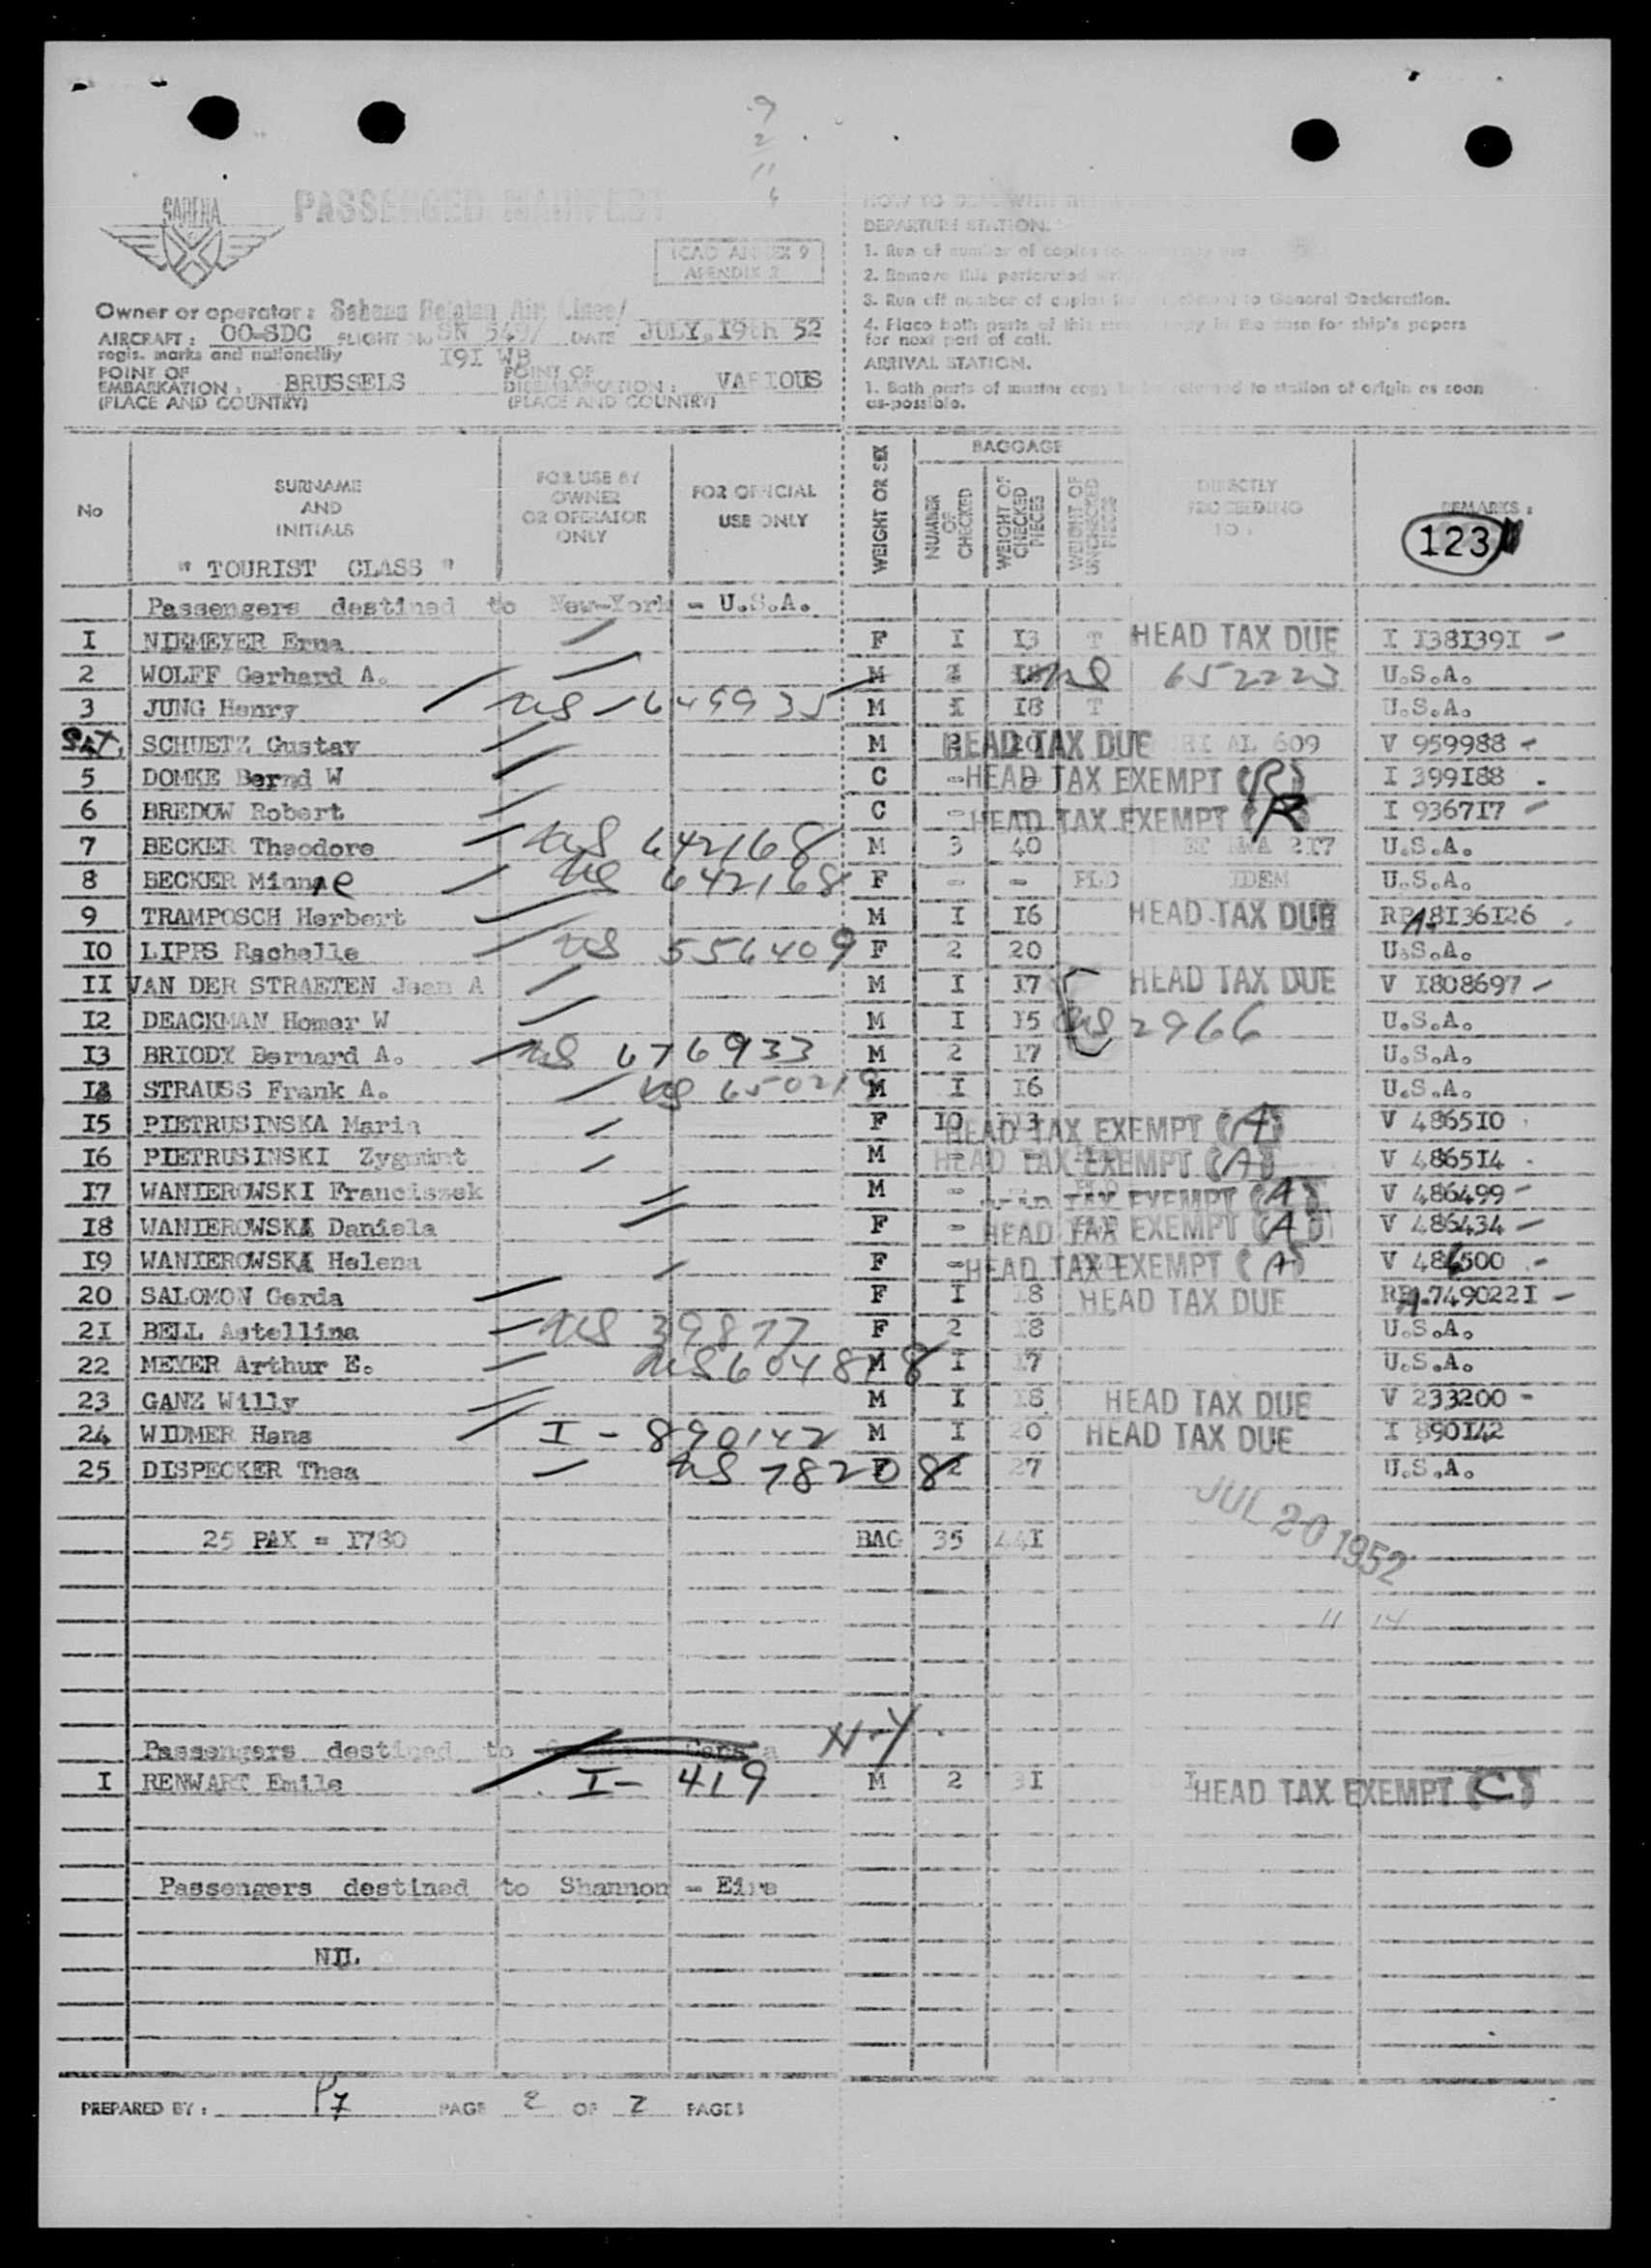 9
2
11
SABENA
PASSENGER MANIFEST
ICAO ANNEX 9
APENDIX 2
Owner or operator : Sabena Belgian Air Lines/
AIRCRAFT : OO-SDC FLIGHT No SN 549/ DATE JULY, 19th 52
regis. marks and nationality I9I WB
POINT OF EMBARKATION : BRUSSELS POINT OF DISEMBARKATION : VARIOUS
(PLACE AND COUNTRY) (PLACE AND COUNTRY)
HOW TO DEAL WITH
DEPARTURE STATION.
1. Run of number of copies
2. Remove this perforated
3. Run off number of copies to General Declaration.
4. Place both parts of this copy in the case for ship's papers
for next port of call.
ARRIVAL STATION.
1. Both parts of master copy to be returned to station of origin as soon
as possible.
No SURNAME AND INITIALS FOR USE BY OWNER OR OPERATOR ONLY FOR OFFICIAL USE ONLY WEIGHT OR SEX BAGGAGE NUMBER OF CHECKED WEIGHT OF CHECKED PIECES WEIGHT OF UNCHECKED PIECES DIRECTLY PROCEEDING TO : REMARKS :
123
" TOURIST CLASS "
Passengers destined to New-York - U.S.A.
I NIEMEYER Erna F I I3 T HEAD TAX DUE I I38I39I -
2 WOLFF Gerhard A. M 2 18 US 652223 U.S.A.
3 JUNG Henry US -1649935 M I I8 T U.S.A.
SCHUETZ Gustav M 2 20 HEAD TAX DUE AL 609 V 959988 -
5 DOMKE Bernd W C - - HEAD TAX EXEMPT (R) I 399I88 -
6 BREDOW Robert C - HEAD TAX EXEMPT (R) I 9367I7 -
7 BECKER Theodore US 642168 M 3 40 2I7 U.S.A.
8 BECKER Minnie US 642168 F - - PLD IDEM U.S.A.
9 TRAMPOSCH Herbert M I I6 HEAD TAX DUE RPA.8I36I26
IO LIPPS Rachelle US 556409 F 2 20 U.S.A.
II VAN DER STRAETEN Jean A M I I7 HEAD TAX DUE V I808697 -
I2 DEACKMAN Homer W M I I5 US 2966 U.S.A.
I3 BRIODY Bernard A. US 676933 M 2 I7 U.S.A.
I4 STRAUSS Frank A. US 650219 M I I6 U.S.A.
I5 PIETRUSINSKA Maria F IO II3 HEAD TAX EXEMPT (A) V 4865IO
I6 PIETRUSINSKI Zygmunt M - - HEAD TAX EXEMPT (A) V 4865I4 -
I7 WANIEROWSKI Franciszek M - PLD HEAD TAX EXEMPT (A) V 486499 -
I8 WANIEROWSKA Daniela F - HEAD TAX EXEMPT (A) V 486434 -
I9 WANIEROWSKA Helena F - HEAD TAX EXEMPT (A) V 486500 -
20 SALOMON Gerda F I I8 HEAD TAX DUE RPA.749022I -
2I BELL Astellina US 39877 F 2 I8 U.S.A.
22 MEYER Arthur E. US 604818 M I I7 U.S.A.
23 GANZ Willy M I I8 HEAD TAX DUE V 233200 -
24 WIDMER Hans I - 890142 M I 20 HEAD TAX DUE I 890I42
25 DISPECKER Thea US 78208 F 2 27 U.S.A.
JUL 20 1952
25 PAX = I780 BAG 35 44I
11 14
Passengers destined to Canada N-Y
I RENWART Emile I - 419 M 2 3I HEAD TAX EXEMPT (C)
Passengers destined to Shannon - Eire
NIL.
PREPARED BY : P7 PAGE 2 OF 2 PAGES